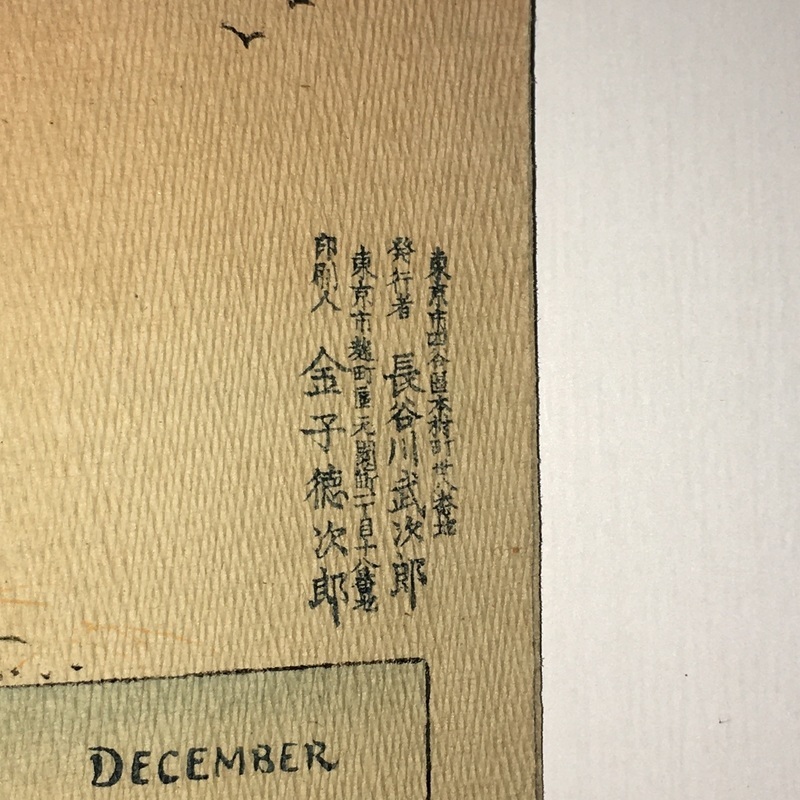 東京市四谷區本村町丗八番地
発行者 長谷川武次郎
東京市麹町區元園町一丁目十八番地
印刷人 金子徳次郎
DECEMBER